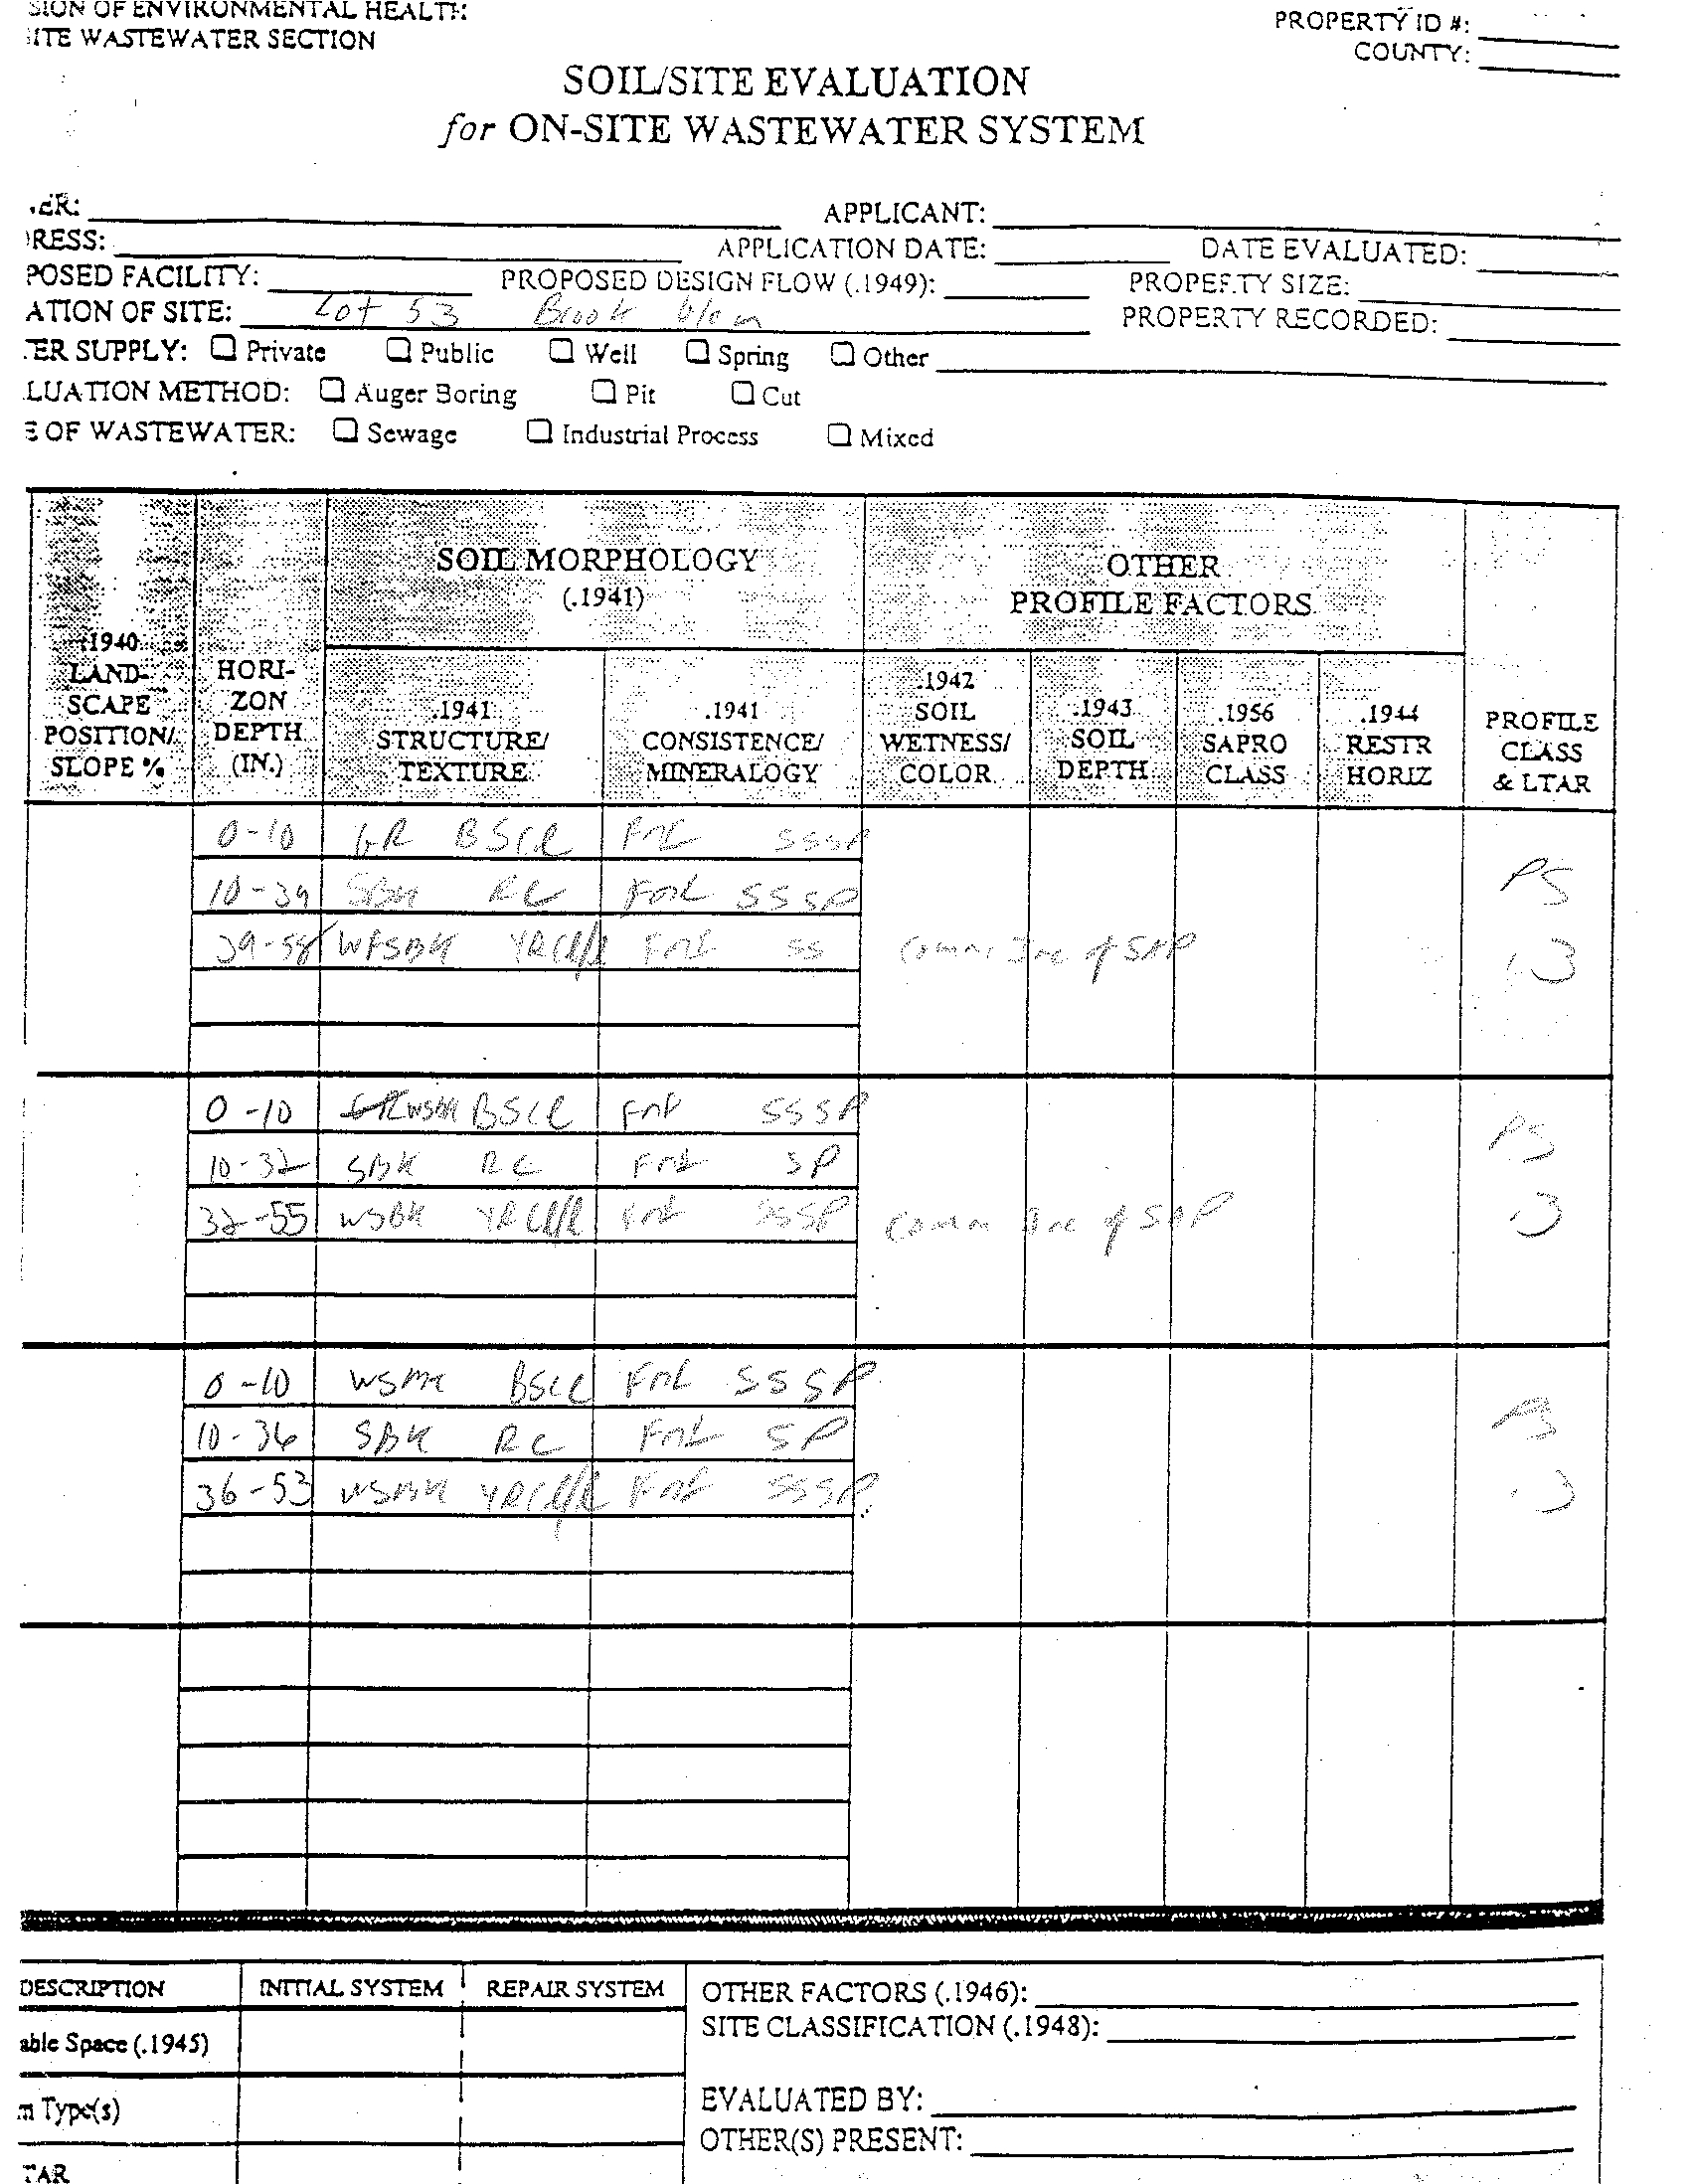 SION OF ENVIRONMENTAL HEALTH
SITE WASTEWATER SECTION
PROPERTY ID #:
COUNTY:
SOIL/SITE EVALUATION
for ON-SITE WASTEWATER SYSTEM
ER:
APPLICANT:
RESS:
APPLICATION DATE:
DATE EVALUATED:
POSED FACILITY:
PROPOSED DESIGN FLOW (.1949):
PROPERTY SIZE:
ATION OF SITE: Lot 53 Brook
PROPERTY RECORDED:
ER SUPPLY: ☐ Private ☐ Public ☐ Well ☐ Spring ☐ Other
LUATION METHOD: ☐ Auger Boring ☐ Pit ☐ Cut
E OF WASTEWATER: ☐ Sewage ☐ Industrial Process ☐ Mixed
.1940 LAND-SCAPE POSITION/ SLOPE %
HORI-ZON DEPTH (IN.)
SOIL MORPHOLOGY (.1941)
.1941 STRUCTURE/ TEXTURE
.1941 CONSISTENCE/ MINERALOGY
OTHER PROFILE FACTORS
.1942 SOIL WETNESS/ COLOR
.1943 SOIL DEPTH
.1956 SAPRO CLASS
.1944 RESTR HORIZ
PROFILE CLASS & LTAR
0-10 GR BSCL SSSP
10-39 SBK RC SSSP
39-58 WFSBK SS of SAP
PS
.3
0-10 WSBK BSCL SSSP
10-32 SBK RC SP
32-55 WSBK SSSP of SAP
PS
.3
0-10 BSCL SSSP
10-36 SBK RC SP
36-53 WSBK SSSP
PS
.3
DESCRIPTION
INITIAL SYSTEM
REPAIR SYSTEM
OTHER FACTORS (.1946):
SITE CLASSIFICATION (.1948):
able Space (.1945)
m Type(s)
EVALUATED BY:
OTHER(S) PRESENT:
TAR